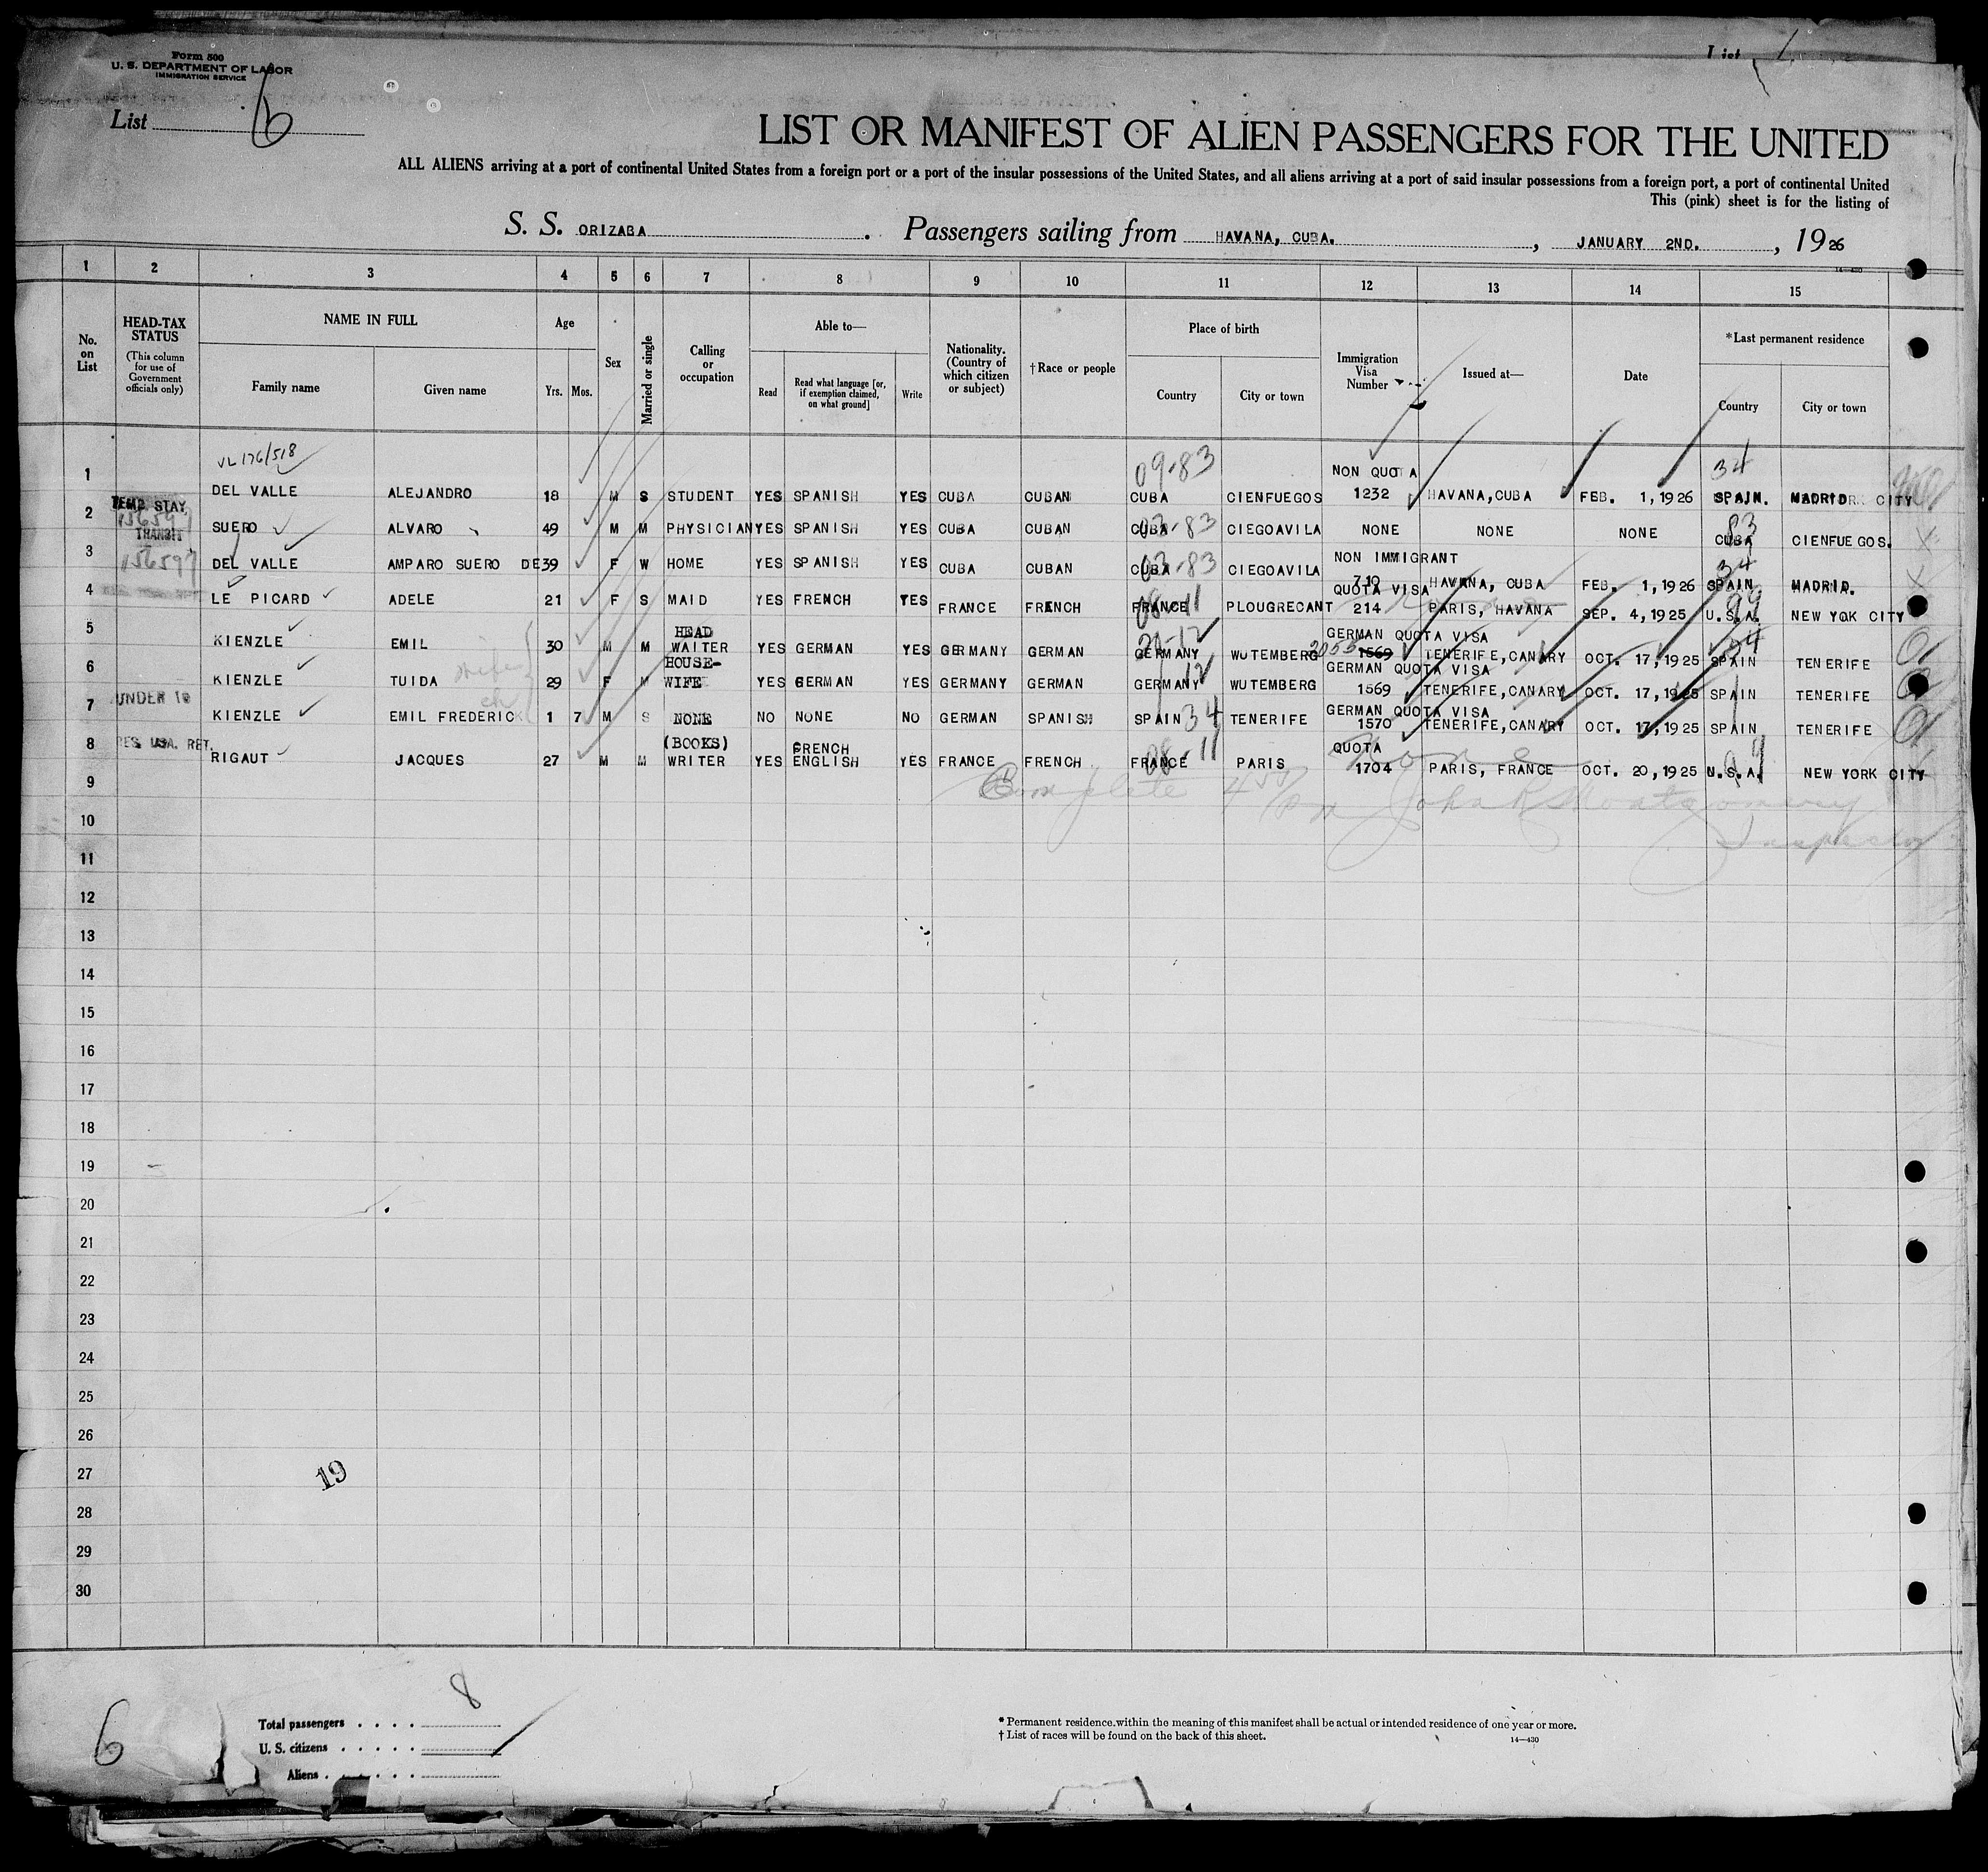 Form 500
U. S. DEPARTMENT OF LABOR
IMMIGRATION SERVICE
List
List 6
LIST OR MANIFEST OF ALIEN PASSENGERS FOR THE UNITED
ALL ALIENS arriving at a port of continental United States from a foreign port or a port of the insular possessions of the United States, and all aliens arriving at a port of said insular possessions from a foreign port, a port of continental United
This (pink) sheet is for the listing of
S. S. ORIZABA. Passengers sailing from HAVANA, CUBA. , JANUARY 2ND. , 1926
14—430
1 2 3 4 5 6 7 8 9 10 11 12 13 14 15
No. on List
HEAD-TAX STATUS (This column for use of Government officials only)
NAME IN FULL
Family name
Given name
Age
Yrs. Mos.
Sex
Married or single
Calling or occupation
Able to—
Read
Read what language [or, if exemption claimed, on what ground]
Write
Nationality. (Country of which citizen or subject)
† Race or people
Place of birth
Country
City or town
Immigration Visa Number
Issued at—
Date
*Last permanent residence
Country
City or town
VL 176/518 09-83 34
1 DEL VALLE ALEJANDRO 18 M S STUDENT YES SPANISH YES CUBA CUBAN CUBA CIENFUEGOS NON QUOTA 1232 HAVANA, CUBA FEB. 1, 1926 SPAIN. MADRID CITY
2 TEMP. STAY SUERO ALVARO 49 M M PHYSICIAN YES SPANISH YES CUBA CUBAN CUBA 03-83 CIEGOAVILA NONE NONE NONE 83 CUBA CIENFUEGOS.
TRANSIT
3 156597 DEL VALLE AMPARO SUERO DE 39 F W HOME YES SPANISH YES CUBA CUBAN CUBA 03-83 CIEGOAVILA NON IMMIGRANT 710 HAVANA, CUBA FEB. 1, 1926 34 SPAIN MADRID.
4 LE PICARD ADELE 21 F S MAID YES FRENCH YES FRANCE FRENCH FRANCE 08-11 PLOUGRECANT QUOTA VISA 214 PARIS, HAVANA SEP. 4, 1925 U.S.A. 99 NEW YOK CITY
5 KIENZLE EMIL 30 M M HEAD WAITER YES GERMAN YES GERMANY GERMAN GERMANY 20-12 WUTEMBERG GERMAN QUOTA VISA 2055 1569 TENERIFE, CANARY OCT. 17, 1925 34 SPAIN TENERIFE 01
6 KIENZLE TUIDA wife 29 F M HOUSE-WIFE YES GERMAN YES GERMANY GERMAN GERMANY 12 WUTEMBERG GERMAN QUOTA VISA 1569 TENERIFE, CANARY OCT. 17, 1925 SPAIN TENERIFE
7 UNDER 16 KIENZLE EMIL FREDERICK ch 1 7 M S NONE NO NONE NO GERMAN SPANISH SPAIN 34 TENERIFE GERMAN QUOTA VISA 1570 TENERIFE, CANARY OCT. 17, 1925 SPAIN TENERIFE 01
8 RES. USA. RET. RIGAUT JACQUES 27 M M (BOOKS) WRITER YES FRENCH ENGLISH YES FRANCE FRENCH FRANCE 08-11 PARIS QUOTA 1704 PARIS, FRANCE OCT. 20, 1925 U.S.A. 99 NEW YORK CITY
9 Complete 450 pm John R Montgomery
Inspector
10
11
12
13
14
15
16
17
18
19
20
21
22
23
24
25
26
27
19
28
29
30
6
Total passengers . . . . 8
U. S. citizens . . . . .
Aliens . . . . . .
* Permanent residence within the meaning of this manifest shall be actual or intended residence of one year or more.
† List of races will be found on the back of this sheet.
14—430